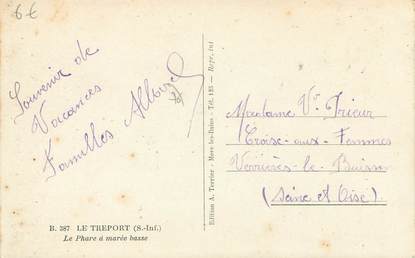 6€
Souvenir de
Vacances
Familles
B. 387 LE TREPORT (S.-Inf.)
Le Phare à marée basse
Edition A. Terrier - Mers-les-Bains - Tél. 135 — Repr. int
Madame Vve Prieur
Croix-aux-Femmes
Verrières-le-Buisson
(Seine et Oise)